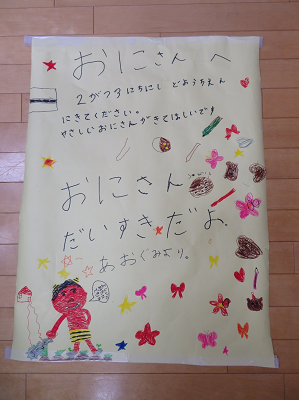 おにさんへ
2がつ3にちにし どようちえん
にきてください。
やさしいおにさんがきてほしいです
おにさん
だいすきだよ。
あおぐみより。